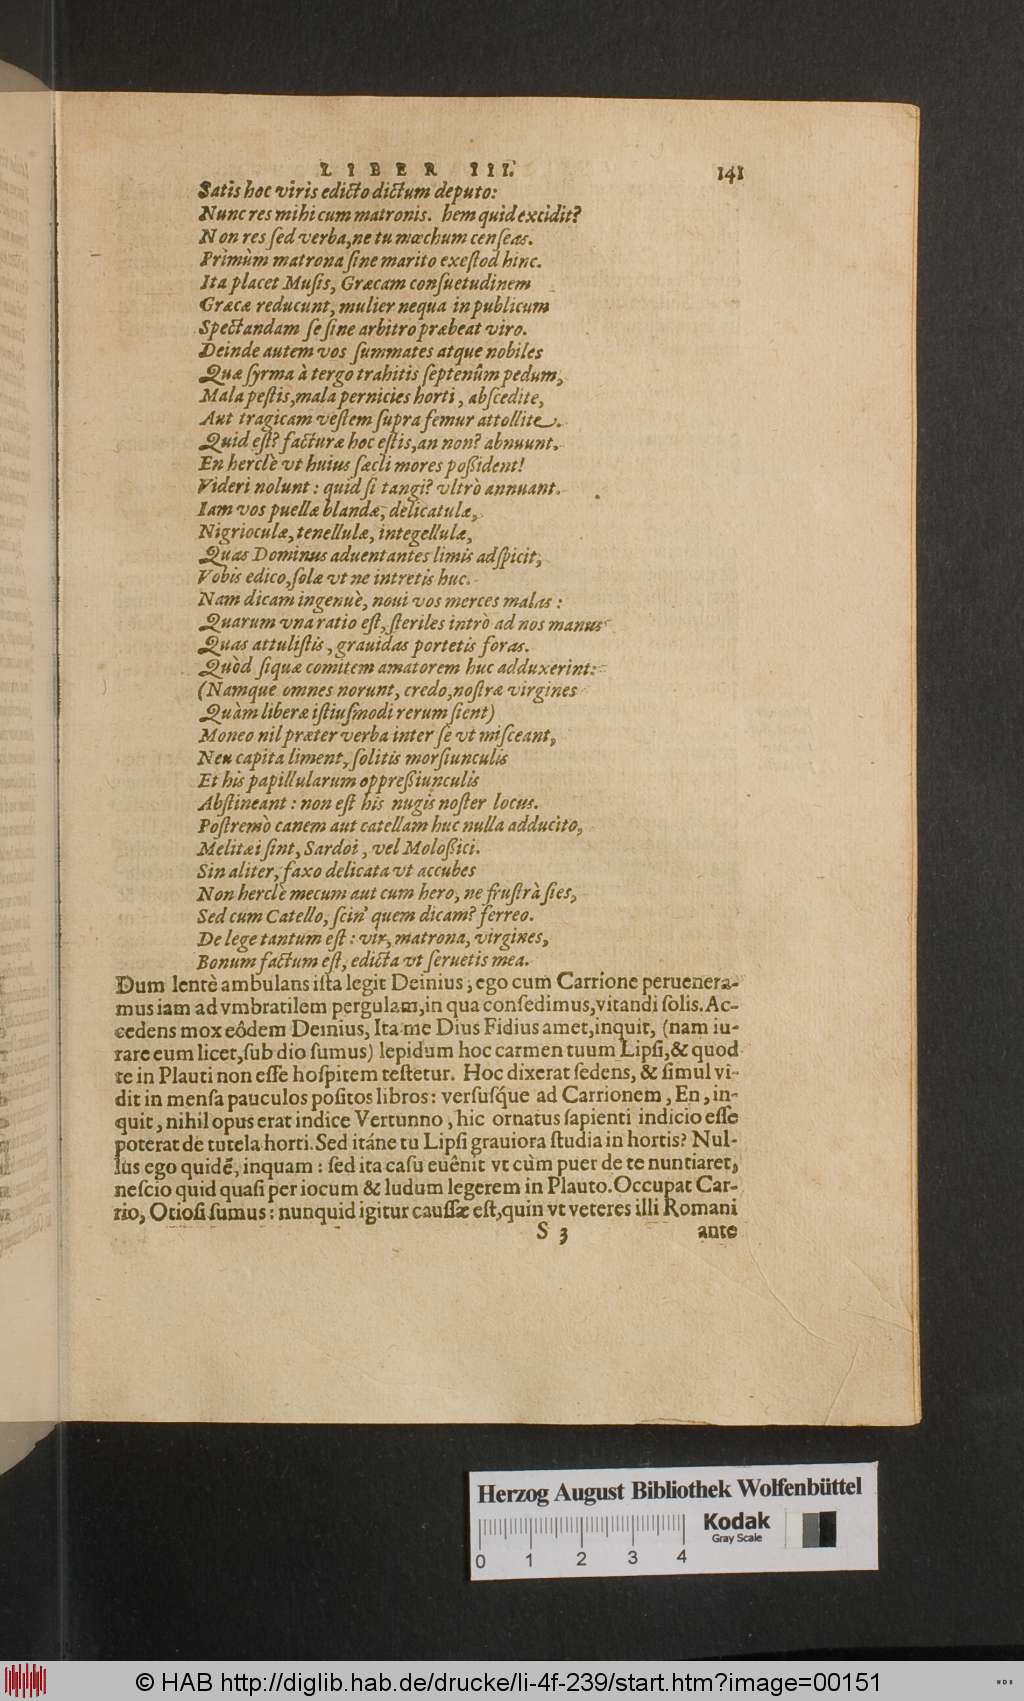 LIBER III. 141
Satis hoc viris edicto dictum deputo:
Nunc res mihi cum matronis. hem quid excidit?
Non res sed verba, ne tu mœchum censeas.
Primùm matrona sine marito exestod hinc.
Ita placet Musis, Græcam consuetudinem
Græcæ reducunt, mulier nequa in publicum
Spectandam se sine arbitro præbeat viro.
Deinde autem vos summates atque nobiles
Quæ syrma à tergo trahitis septenûm pedum,
Mala pestis, mala pernicies horti, abscedite,
Aut tragicam vestem supra femur attollite.
Quid est? facturæ hoc estis, an non? abnuunt.
En herclè vt huius sæcli mores poßident!
Videri nolunt: quid si tangi? vltrò annuant.
Iam vos puellæ blandæ, delicatulæ,
Nigrioculæ, tenellulæ, integellulæ,
Quas Dominus aduentantes limis adspicit,
Vobis edico, solæ vt ne intretis huc.
Nam dicam ingenuè, noui vos merces malas:
Quarum vna ratio est, steriles intrò ad nos manus
Quas attulistis, grauidas portetis foras.
Quòd siquæ comitem amatorem huc adduxerint:
(Namque omnes norunt, credo, nostræ virgines
Quàm liberæ istiusmodi rerum sient)
Moneo nil præter verba inter se vt misceant,
Neu capita liment, solitis morsiunculis
Et his papillularum oppreßiunculis
Abstineant: non est his nugis noster locus.
Postremò canem aut catellam huc nulla adducito,
Melitæi sint, Sardoi, vel Moloßici.
Sin aliter, faxo delicata vt accubes
Non herclè mecum aut cum hero, ne frustrà sies,
Sed cum Catello, scin' quem dicam? ferreo.
De lege tantum est: vir, matrona, virgines,
Bonum factum est, edicta vt seruetis mea.
Dum lentè ambulans ista legit Deinius, ego cum Carrione perueneramus
mus iam ad vmbratilem pergulam, in qua consedimus, vitandi solis. Ac-
cedens mox eôdem Deinius, Ita me Dius Fidius amet, inquit, (nam iu-
rare eum licet, sub dio sumus) lepidum hoc carmen tuum Lipsi, & quod
te in Plauti non esse hospitem testetur. Hoc dixerat sedens, & simul vi-
dit in mensa pauculos positos libros: versusq́ue ad Carrionem, En, in-
quit, nihil opus erat indice Vertunno, hic ornatus sapienti indicio esse
poterat de tutela horti. Sed itáne tu Lipsi grauiora studia in hortis? Nul-
lus ego quidẽ, inquam: sed ita casu euênit vt cùm puer de te nuntiaret,
nescio quid quasi per iocum & ludum legerem in Plauto. Occupat Car-
rio, Otiosi sumus: nunquid igitur caussæ est, quin vt veteres illi Romani
S 3 ante
Herzog August Bibliothek Wolfenbüttel
Kodak
Gray Scale
0 1 2 3 4
© HAB http://diglib.hab.de/drucke/li-4f-239/start.htm?image=00151